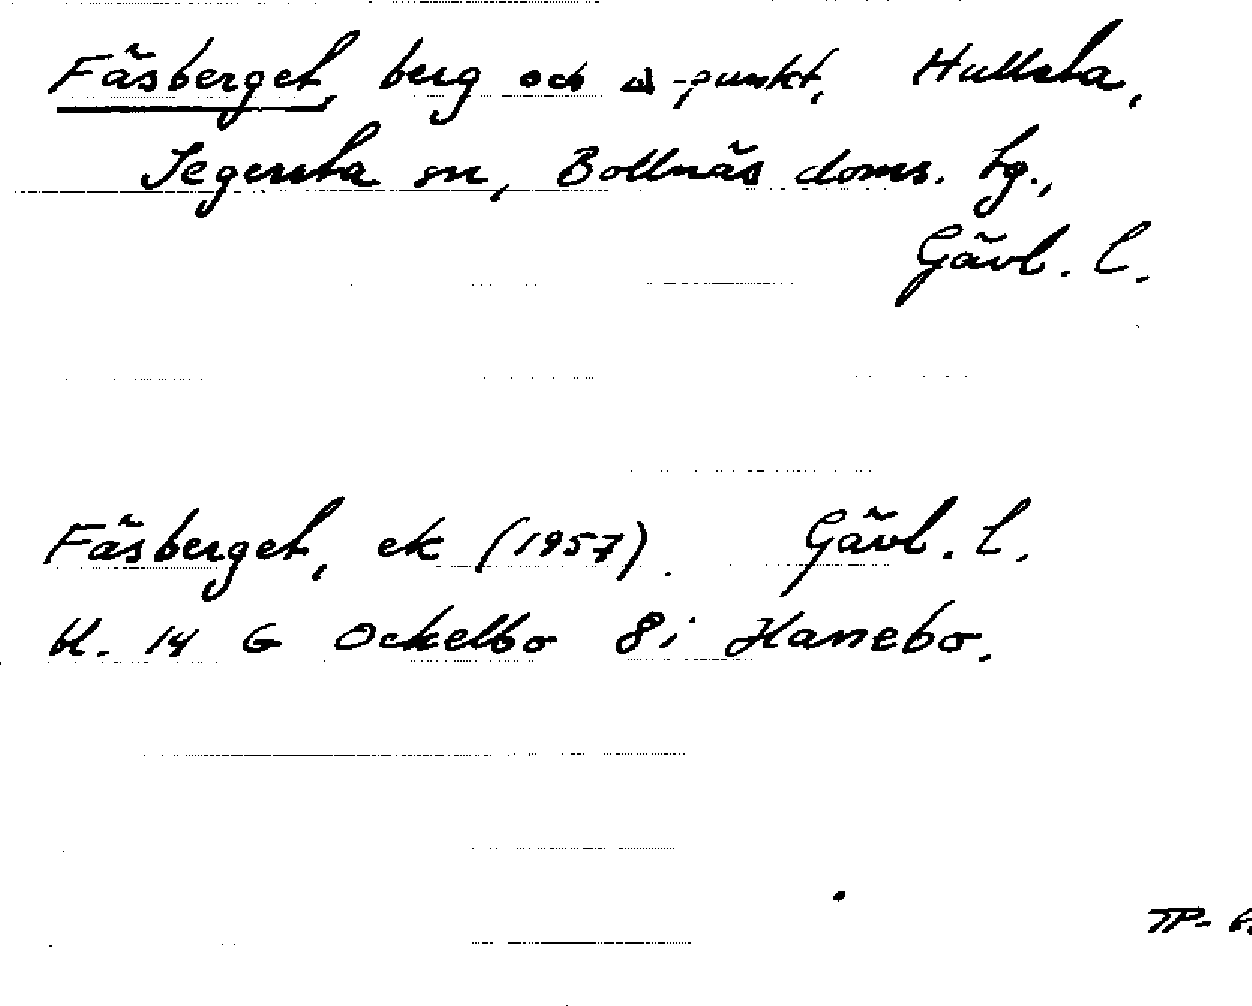 Fäsberget, berg och △-punkt, Hullsta,
Segersta sn, Bollnäs doms. tg.,
Gävl. l.
Fäsberget, ek (1957). Gävl. l.
bl. 14 G Ockelbo 8i Hanebo.
TP-